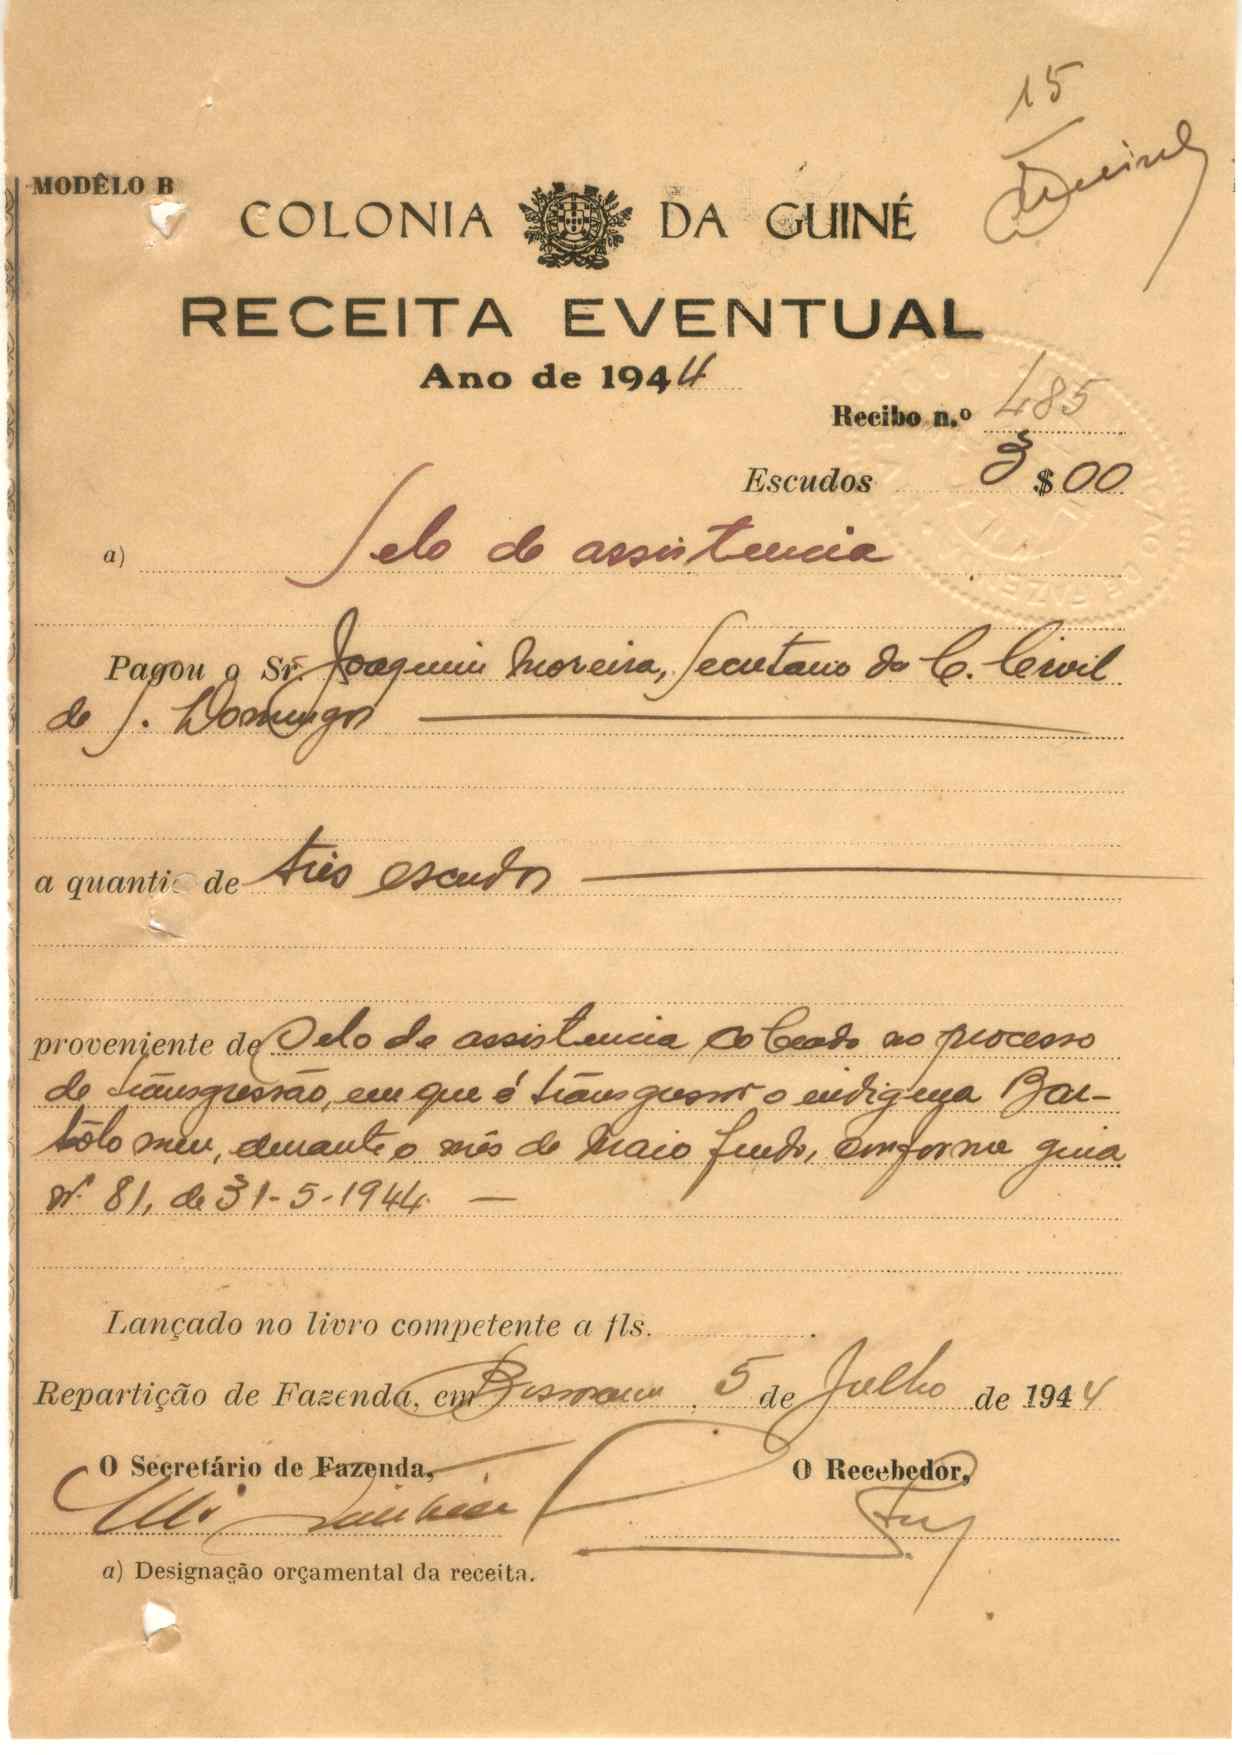 15
MODÊLO B
COLONIA DA GUINÉ
RECEITA EVENTUAL
Ano de 1944
Recibo n.º 485
Escudos 3$00
a) Selo de assistencia
Pagou o Sr. Joaquim Moreira, Secretario da C. Civil
de S. Domingos
a quantia de três escudos
proveniente de Selo de assistencia cobrado no processo
de transgressão, em que é transgressor o indigena Bar-
tolomeu, durante o mês de Maio findo, conforme guia
nº 81, de 31-5-1944
Lançado no livro competente a fls.
Repartição de Fazenda, em Bissau, 5 de Julho de 1944
O Secretário de Fazenda,
O Recebedor,
a) Designação orçamental da receita.